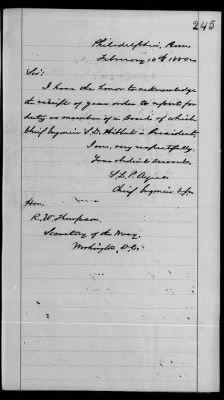 245
Philadelphia, Penn.
February 10th 1880
Sir:
I have the honor to acknowledge
the receipt of your order to report for
duty as member of a Board of which
Chief Engineer S. D. Hibbert is President.
I am, very respectfully,
Your obedient servant,
S. L. P. Ayres
Chief Engineer
Hon.
R. W. Thompson,
Secretary of the Navy,
Washington, D.C.